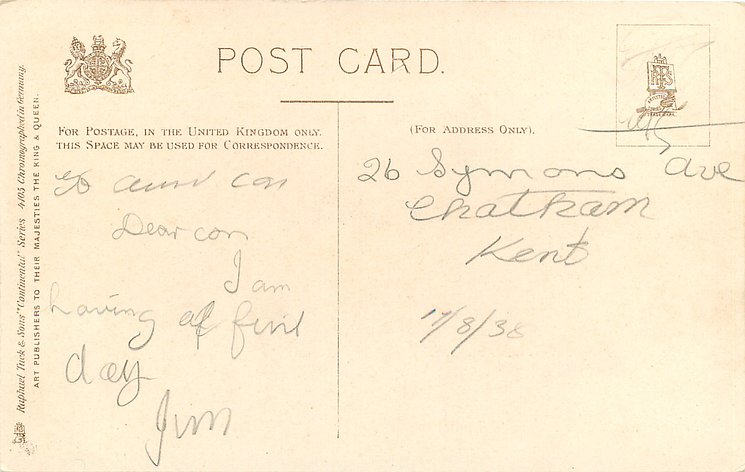 POST CARD.
FOR POSTAGE, IN THE UNITED KINGDOM ONLY,
THIS SPACE MAY BE USED FOR CORRESPONDENCE.
(FOR ADDRESS ONLY).
To aunt con
Dear con
I am
having a fine
day
Jim
26 Symons Ave
Chatham
Kent
17/8/38
Raphael Tuck & Sons' "Continental" Series 4105 Chromographed in Germany.
ART PUBLISHERS TO THEIR MAJESTIES THE KING & QUEEN.
TRADE MARK